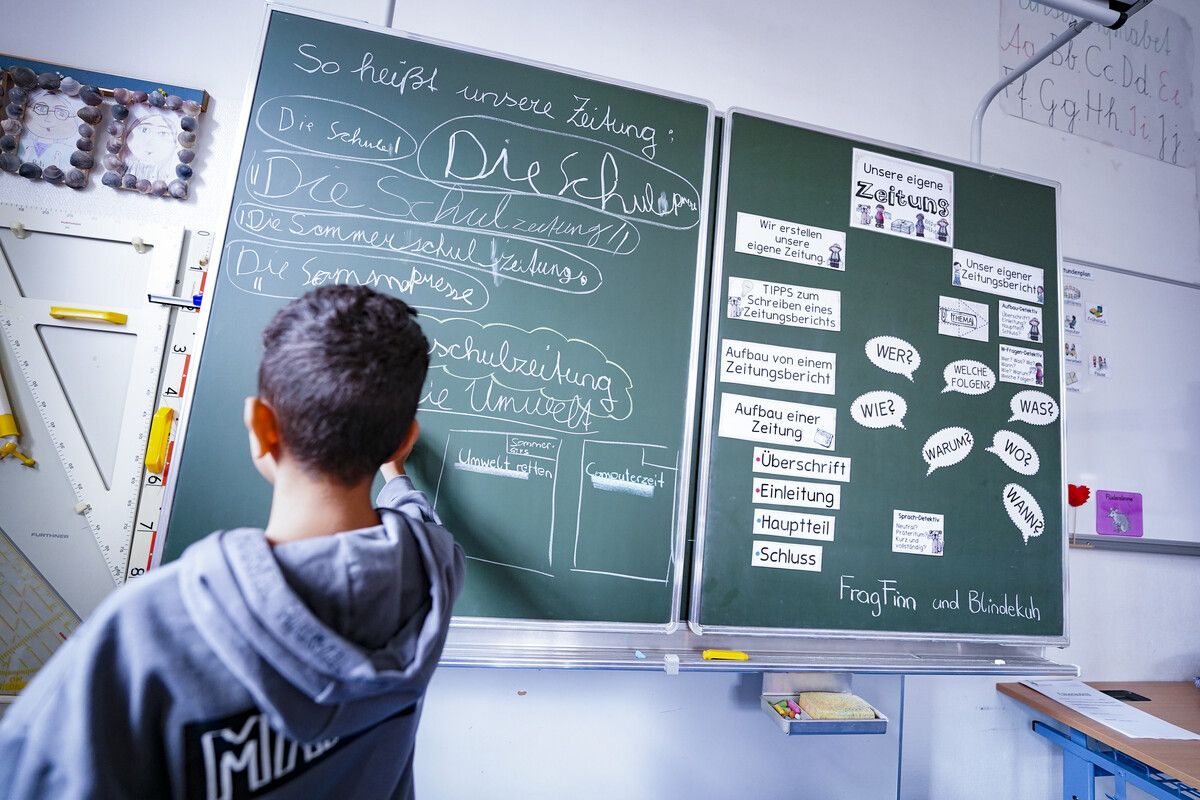 So heißt unsere Zeitung:
Die Schule!
Die Schulpresse
"Die Schulzeitung"
"Die Sommerschulzeitung"
"Die Sommpresse
schulzeitung
Umwelt
Sommer-
Umwelt retten
Computerzeit
Unsere eigene
Zeitung
Wir erstellen
unsere
eigene Zeitung.
Unser eigener
Zeitungsbericht
TIPPS zum
Schreiben eines
Zeitungsberichts
THEMA
Aufbau-Detektiv
Überschrift?
Einleitung?
Hauptteil?
Schluss?
Aufbau von einem
Zeitungsbericht
W-Fragen-Detektiv
WER?
WELCHE
FOLGEN?
WIE?
WAS?
Aufbau einer
Zeitung
WARUM?
WO?
WANN?
Überschrift
Einleitung
Hauptteil
Schluss
Sprach-Detektiv
Neutral?
Präteritum?
Kurz und
vollständig?
FragFinn und Blindekuh
Aa Bb Cc Dd Ee
Ff Gg Hh Ii Jj
Stundenplan
Fledermäuse
FURTHNER
1
3
4
6
7
8